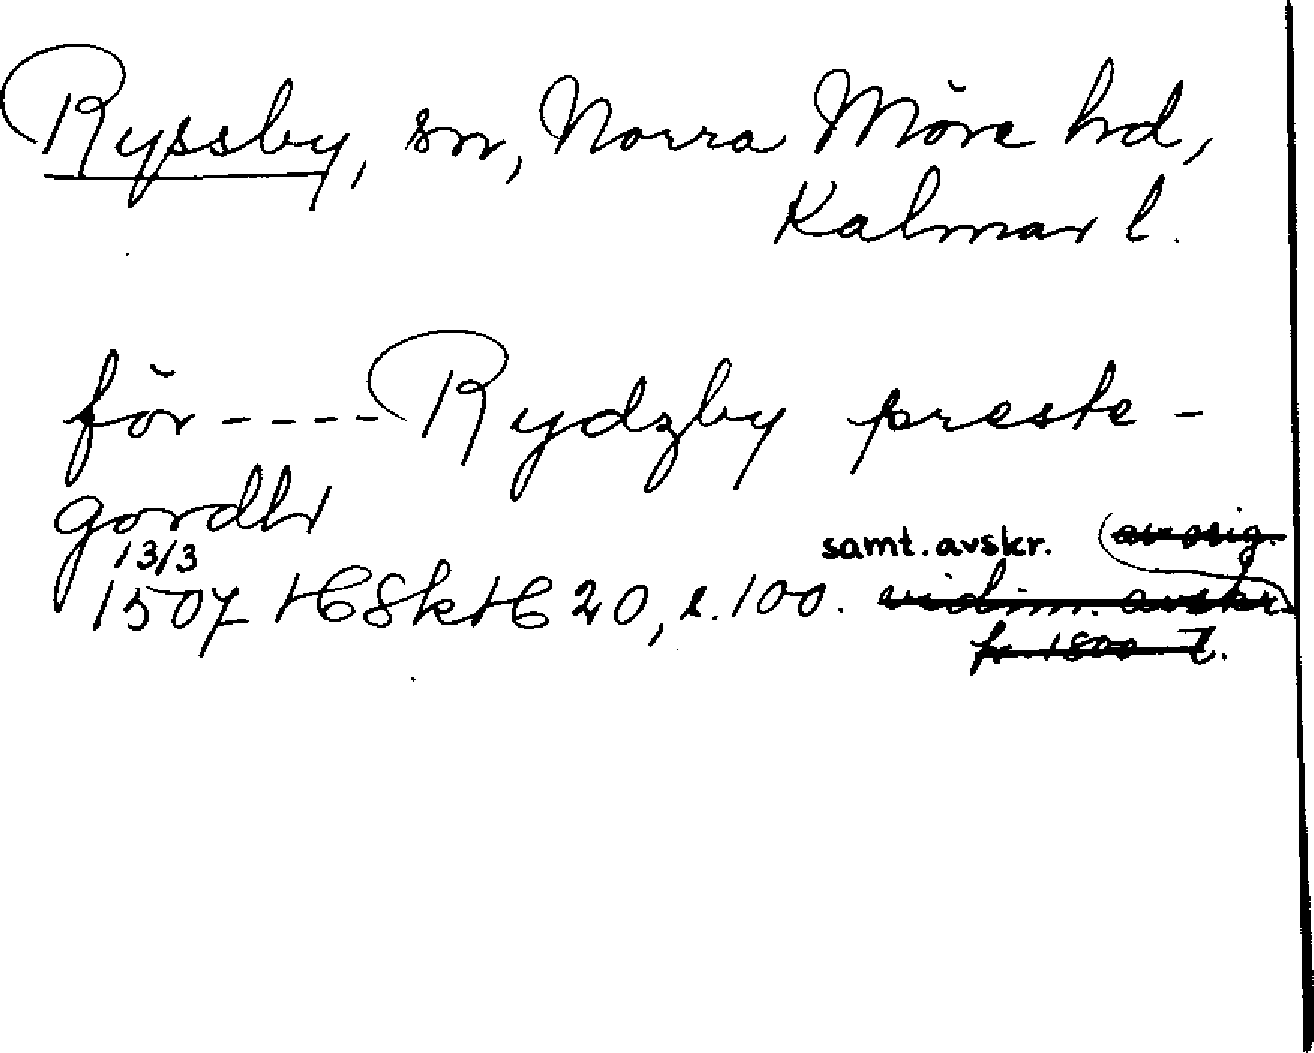 Ryssby, sn, Norra Möre hd,
Kalmar l.
för - - - - Rydzby preste -
gordh
13/3 samt. avskr. av orig.
1507 HC8kHC 20, s. 100. vidim. avskr.
fr. 1500-t.